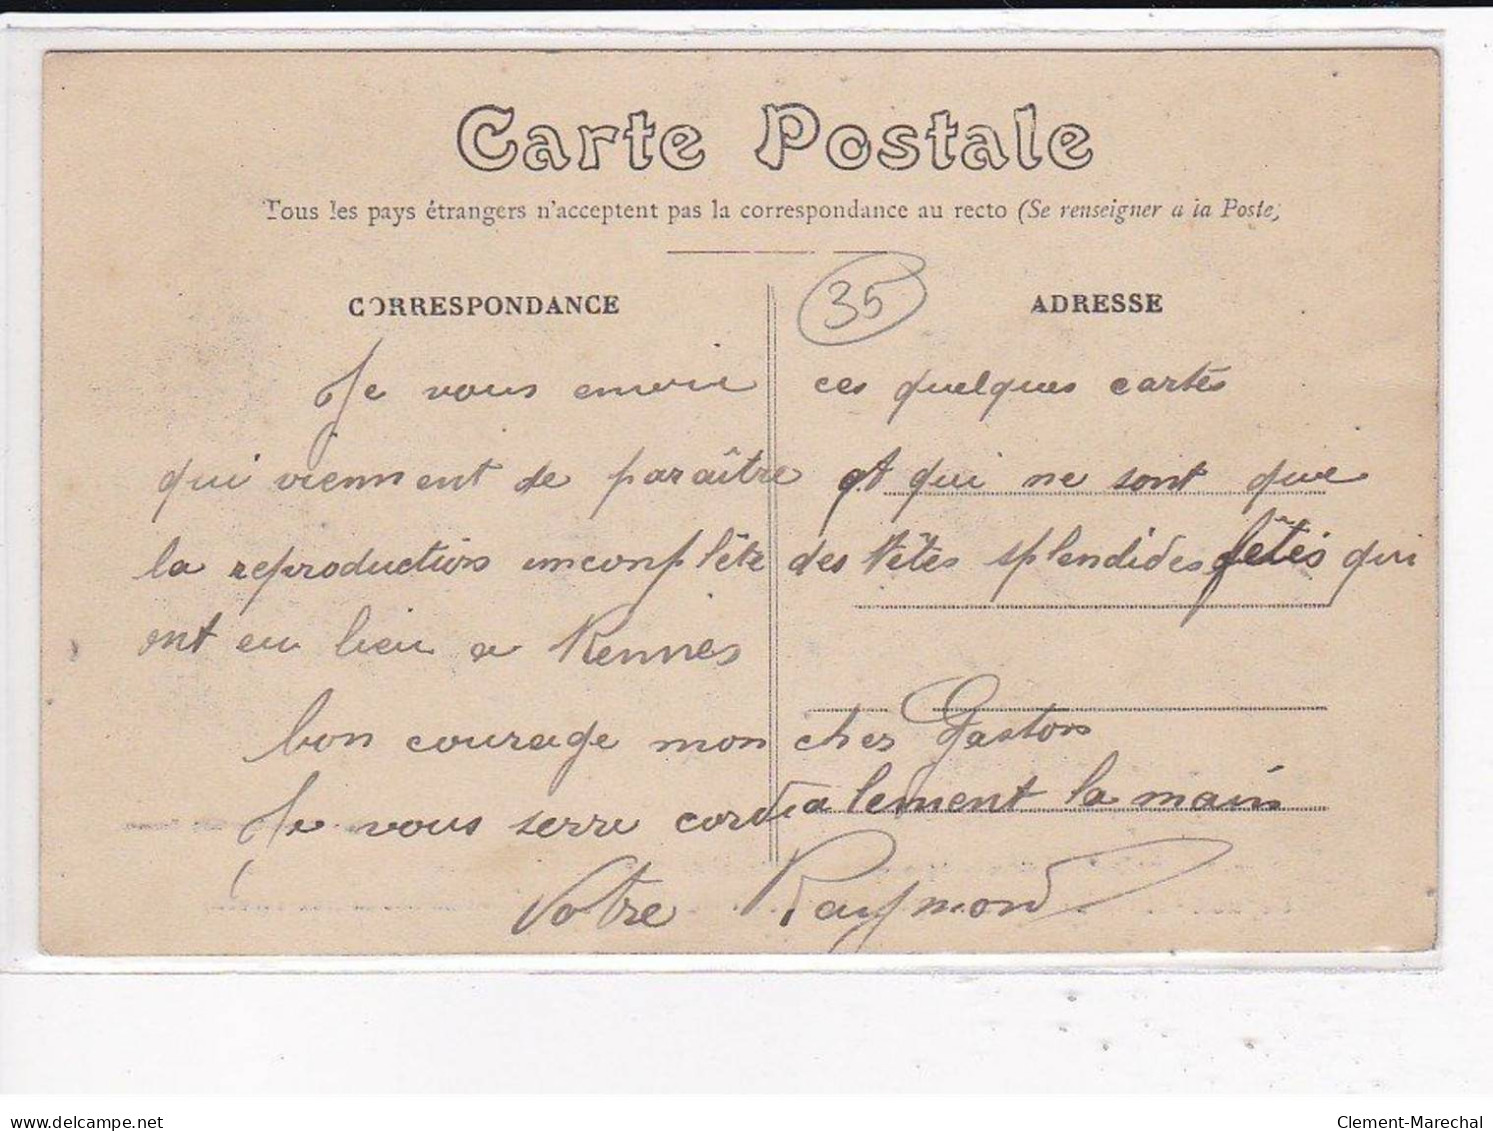 Carte Postale
Tous les pays étrangers n'acceptent pas la correspondance au recto (Se renseigner a la Poste)
CORRESPONDANCE
35
ADRESSE
Je vous envoie ces quelques cartes
qui viennent de paraître et qui ne sont que
la reproduction incomplête des têtes splendides fêtes qui
ont eu lieu a Rennes
bon courage mon cher Gaston
Je vous serre cordialement la main
Votre Raymond
delcampe.net
Clement-Marechal